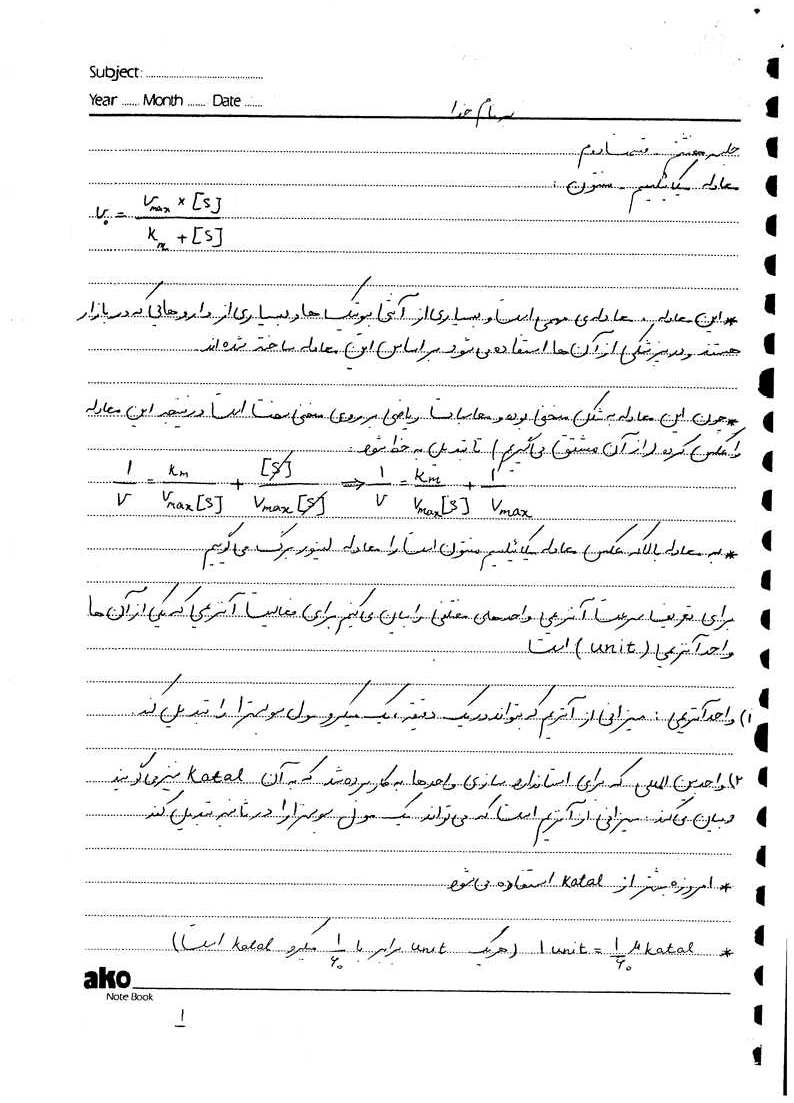 Subject: ........................
Year ...... Month ...... Date ......
به نام خدا
جلسه هشتم - قسمت دوم
معادله میکائیلیس - منتون :
V₀ = Vmax × [S] / Km + [S]
* این معادله ، معادله‌ی مهمی است و بسیاری از آنتی بیوتیک ها و بسیاری از داروهایی که در بازار
هستند و در پزشکی از آن ها استفاده می شود بر اساس این معادله ساخته شده اند
* چون این معادله به شکل منحنی بوده و محاسبات ریاضی بر روی منحنی سخت است در نتیجه این معادله
را عکس کرده (از آن مشتق می گیریم) تا تبدیل به خط شود :
1/V = Km/Vmax[S] + [S]/Vmax[S] ⇒ 1/V = Km/Vmax[S] + 1/Vmax
* به معادله بالا که عکس معادله میکائیلیس منتون است را معادله لینویر برگ می گوییم
برای تعریف سرعت آنزیمی واحدهای مختلفی را بیان می کنیم برای فعالیت آنزیمی که یکی از آن ها
واحد آنزیمی (unit) است
۱) واحد آنزیمی : میزانی از آنزیم که بتواند در یک دقیقه ، یک میکرو مول سوبسترا را تبدیل کند.
۲) واحد بین المللی که برای استاندارد سازی واحدها به کار برده شد که به آن Katal نیز می گویند
و بیان می کند : میزانی از آنزیم است که می تواند یک مول سوبسترا را در ثانیه تبدیل کند
* امروزه بیشتر از Katal استفاده می شود
* 1 unit = 1/۶۰ μkatal (هر یک unit برابر با 1/۶۰ میکرو katal است)
ako
Note Book
1